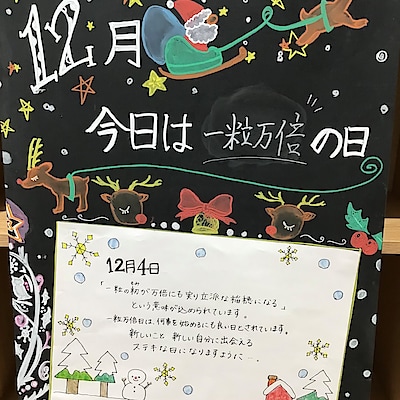 12月
今日は 一粒万倍 の日
12月4日
「一粒の籾が万倍にも実り立派な稲穂になる」
という意味が込められています。
一粒万倍日は、何事を始めるにも良い日とされています。
新しいこと 新しい自分に出会える
ステキな日になりますように…。